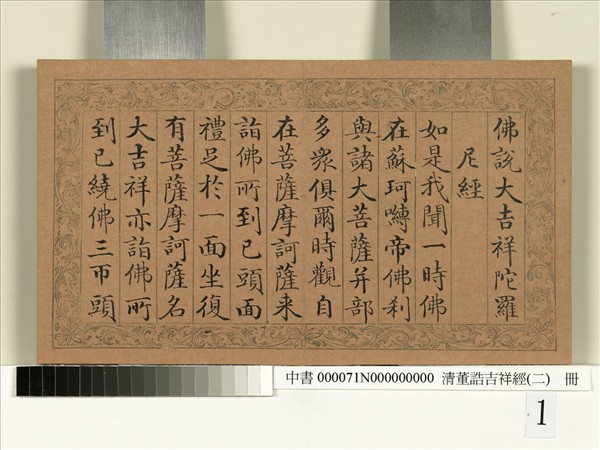 佛說大吉祥陀羅
尼經
如是我聞一時佛
在蘇珂嚩帝佛刹
與諸大菩薩并部
多衆俱爾時觀自
在菩薩摩訶薩来
詣佛所到已頭面
禮足於一面坐復
有菩薩摩訶薩名
大吉祥亦詣佛所
到已繞佛三帀頭
中書 000071N000000000 清董誥吉祥經(二) 冊
1